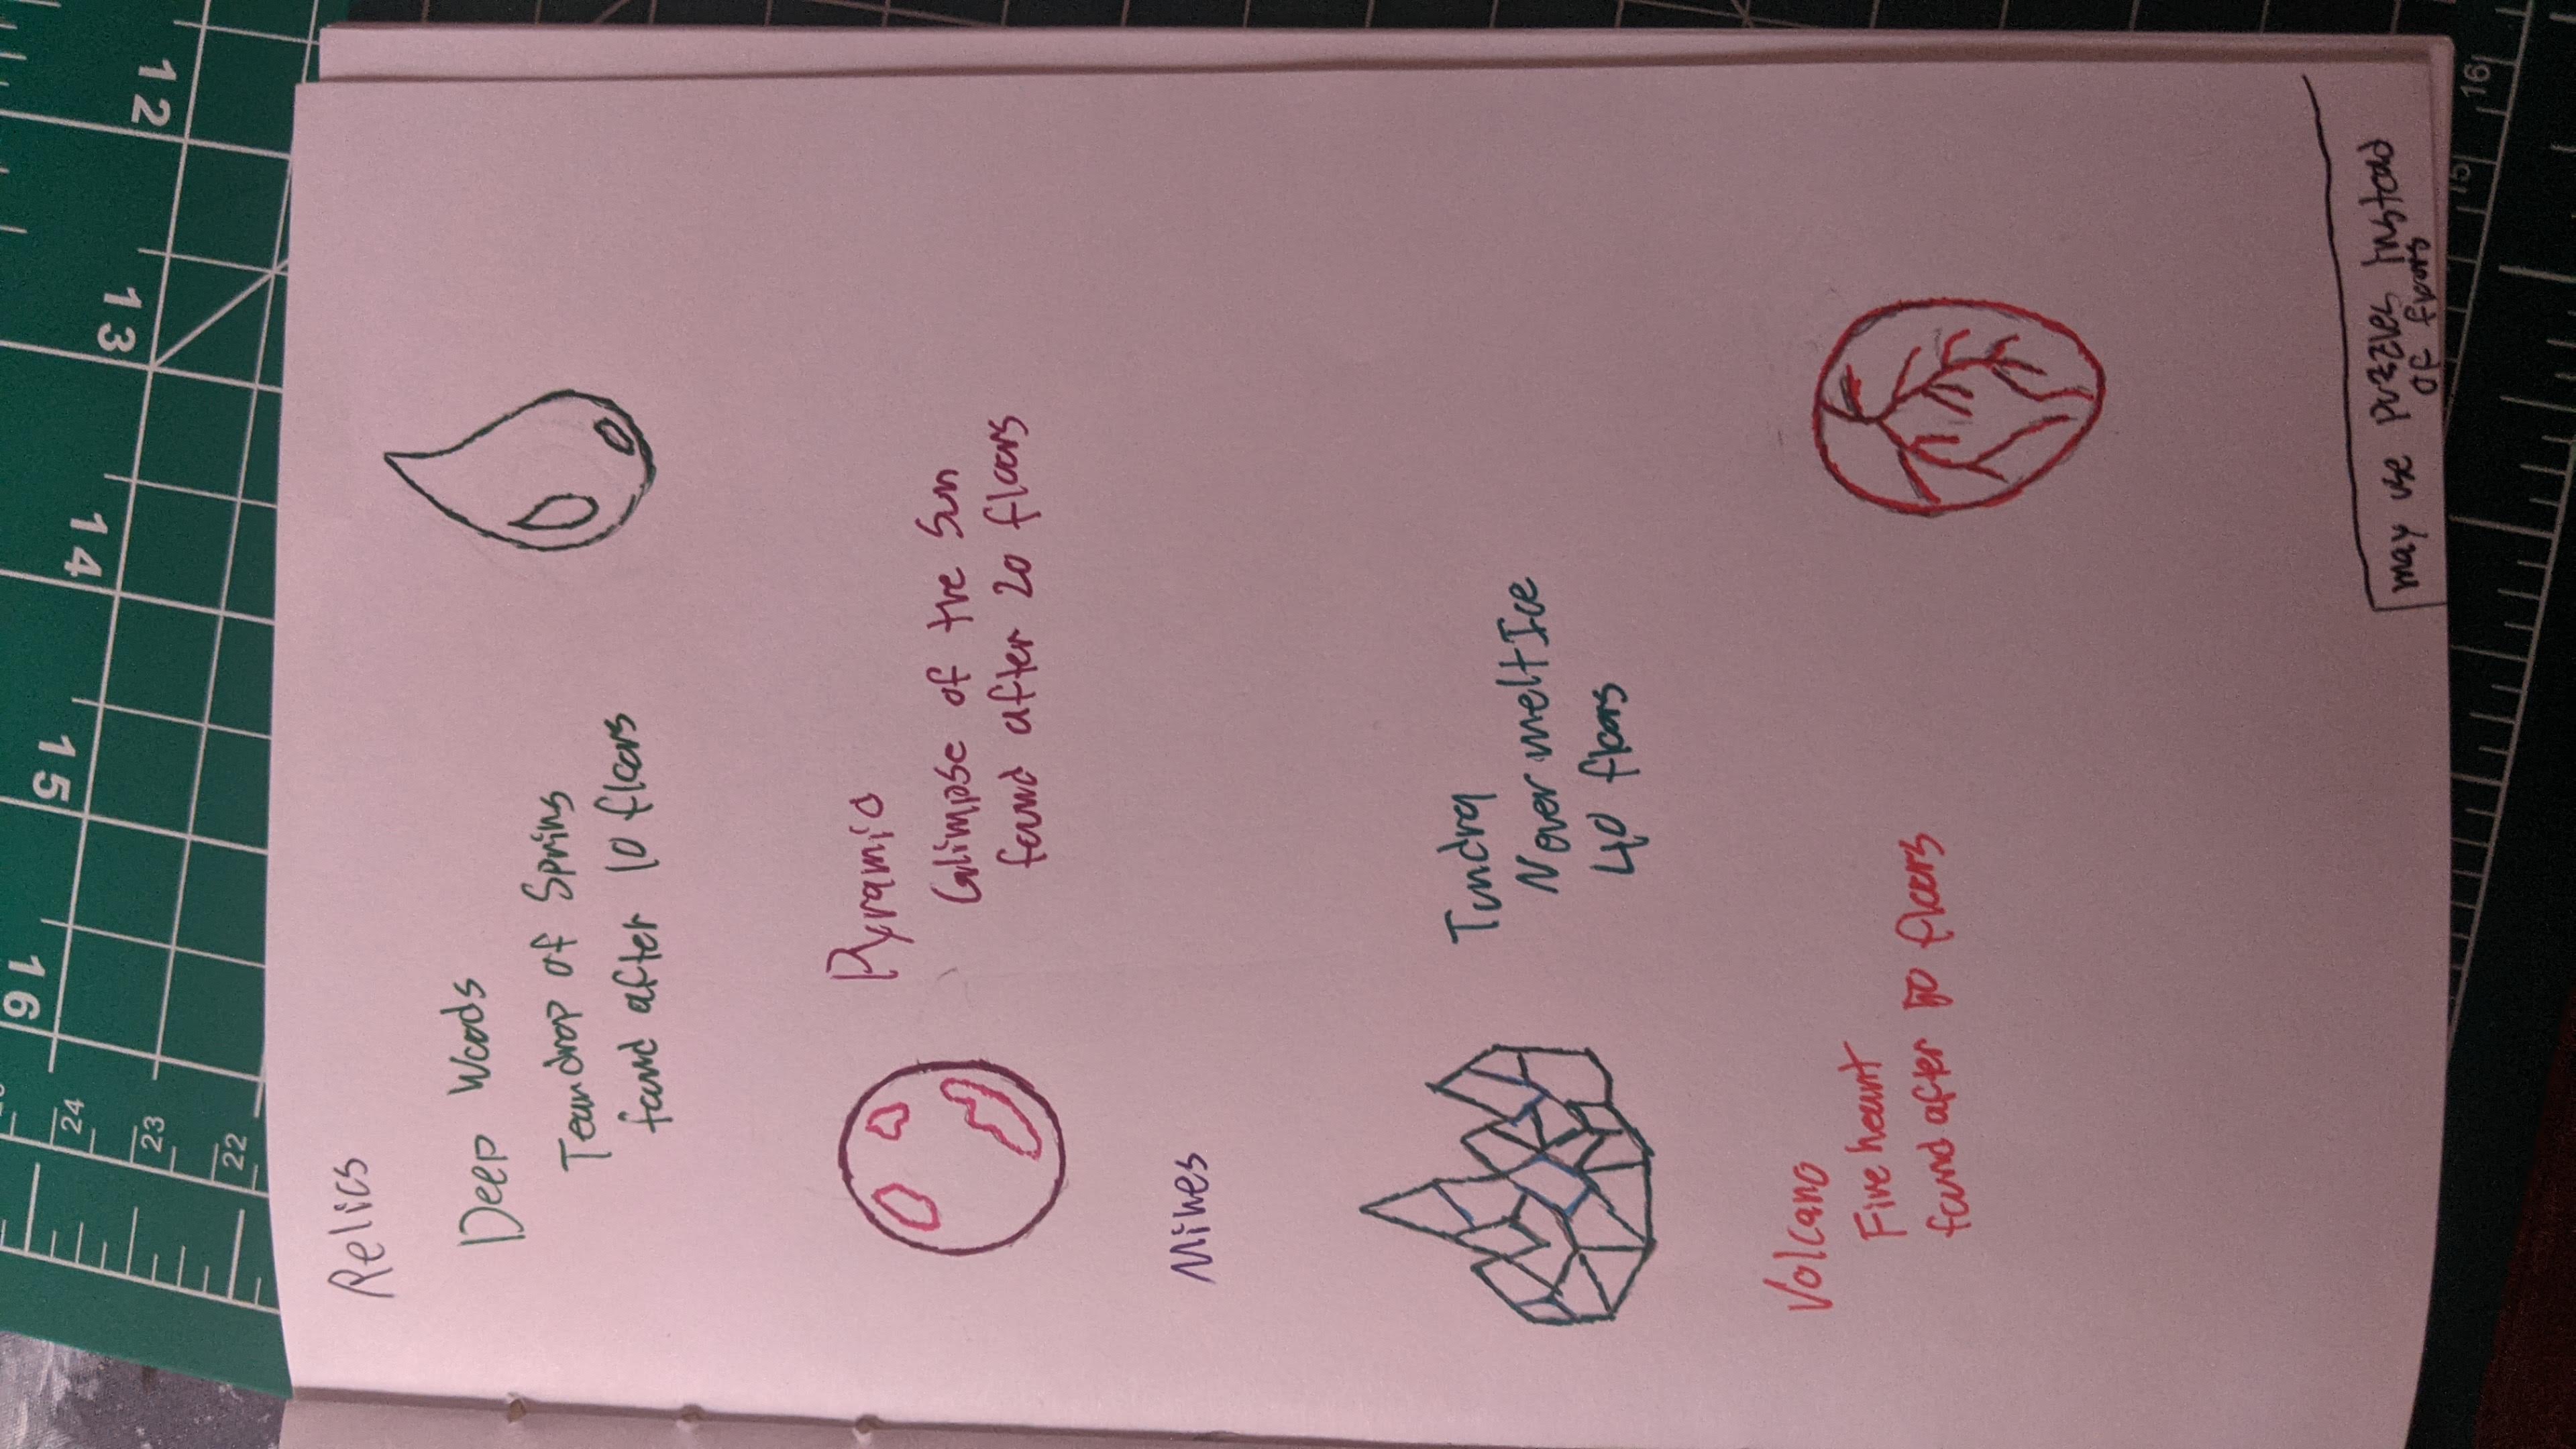 16 15 14 13 12
24
23
22
Relics
Deep Woods
Teardrop of Spring
found after 10 floors
Pyramid
Glimpse of the Sun
found after 20 floors
Mines
Tundra
Never melt Ice
40 floors
Volcano
Fire heart
found after 50 floors
may use puzzles instead
of floors
15 16